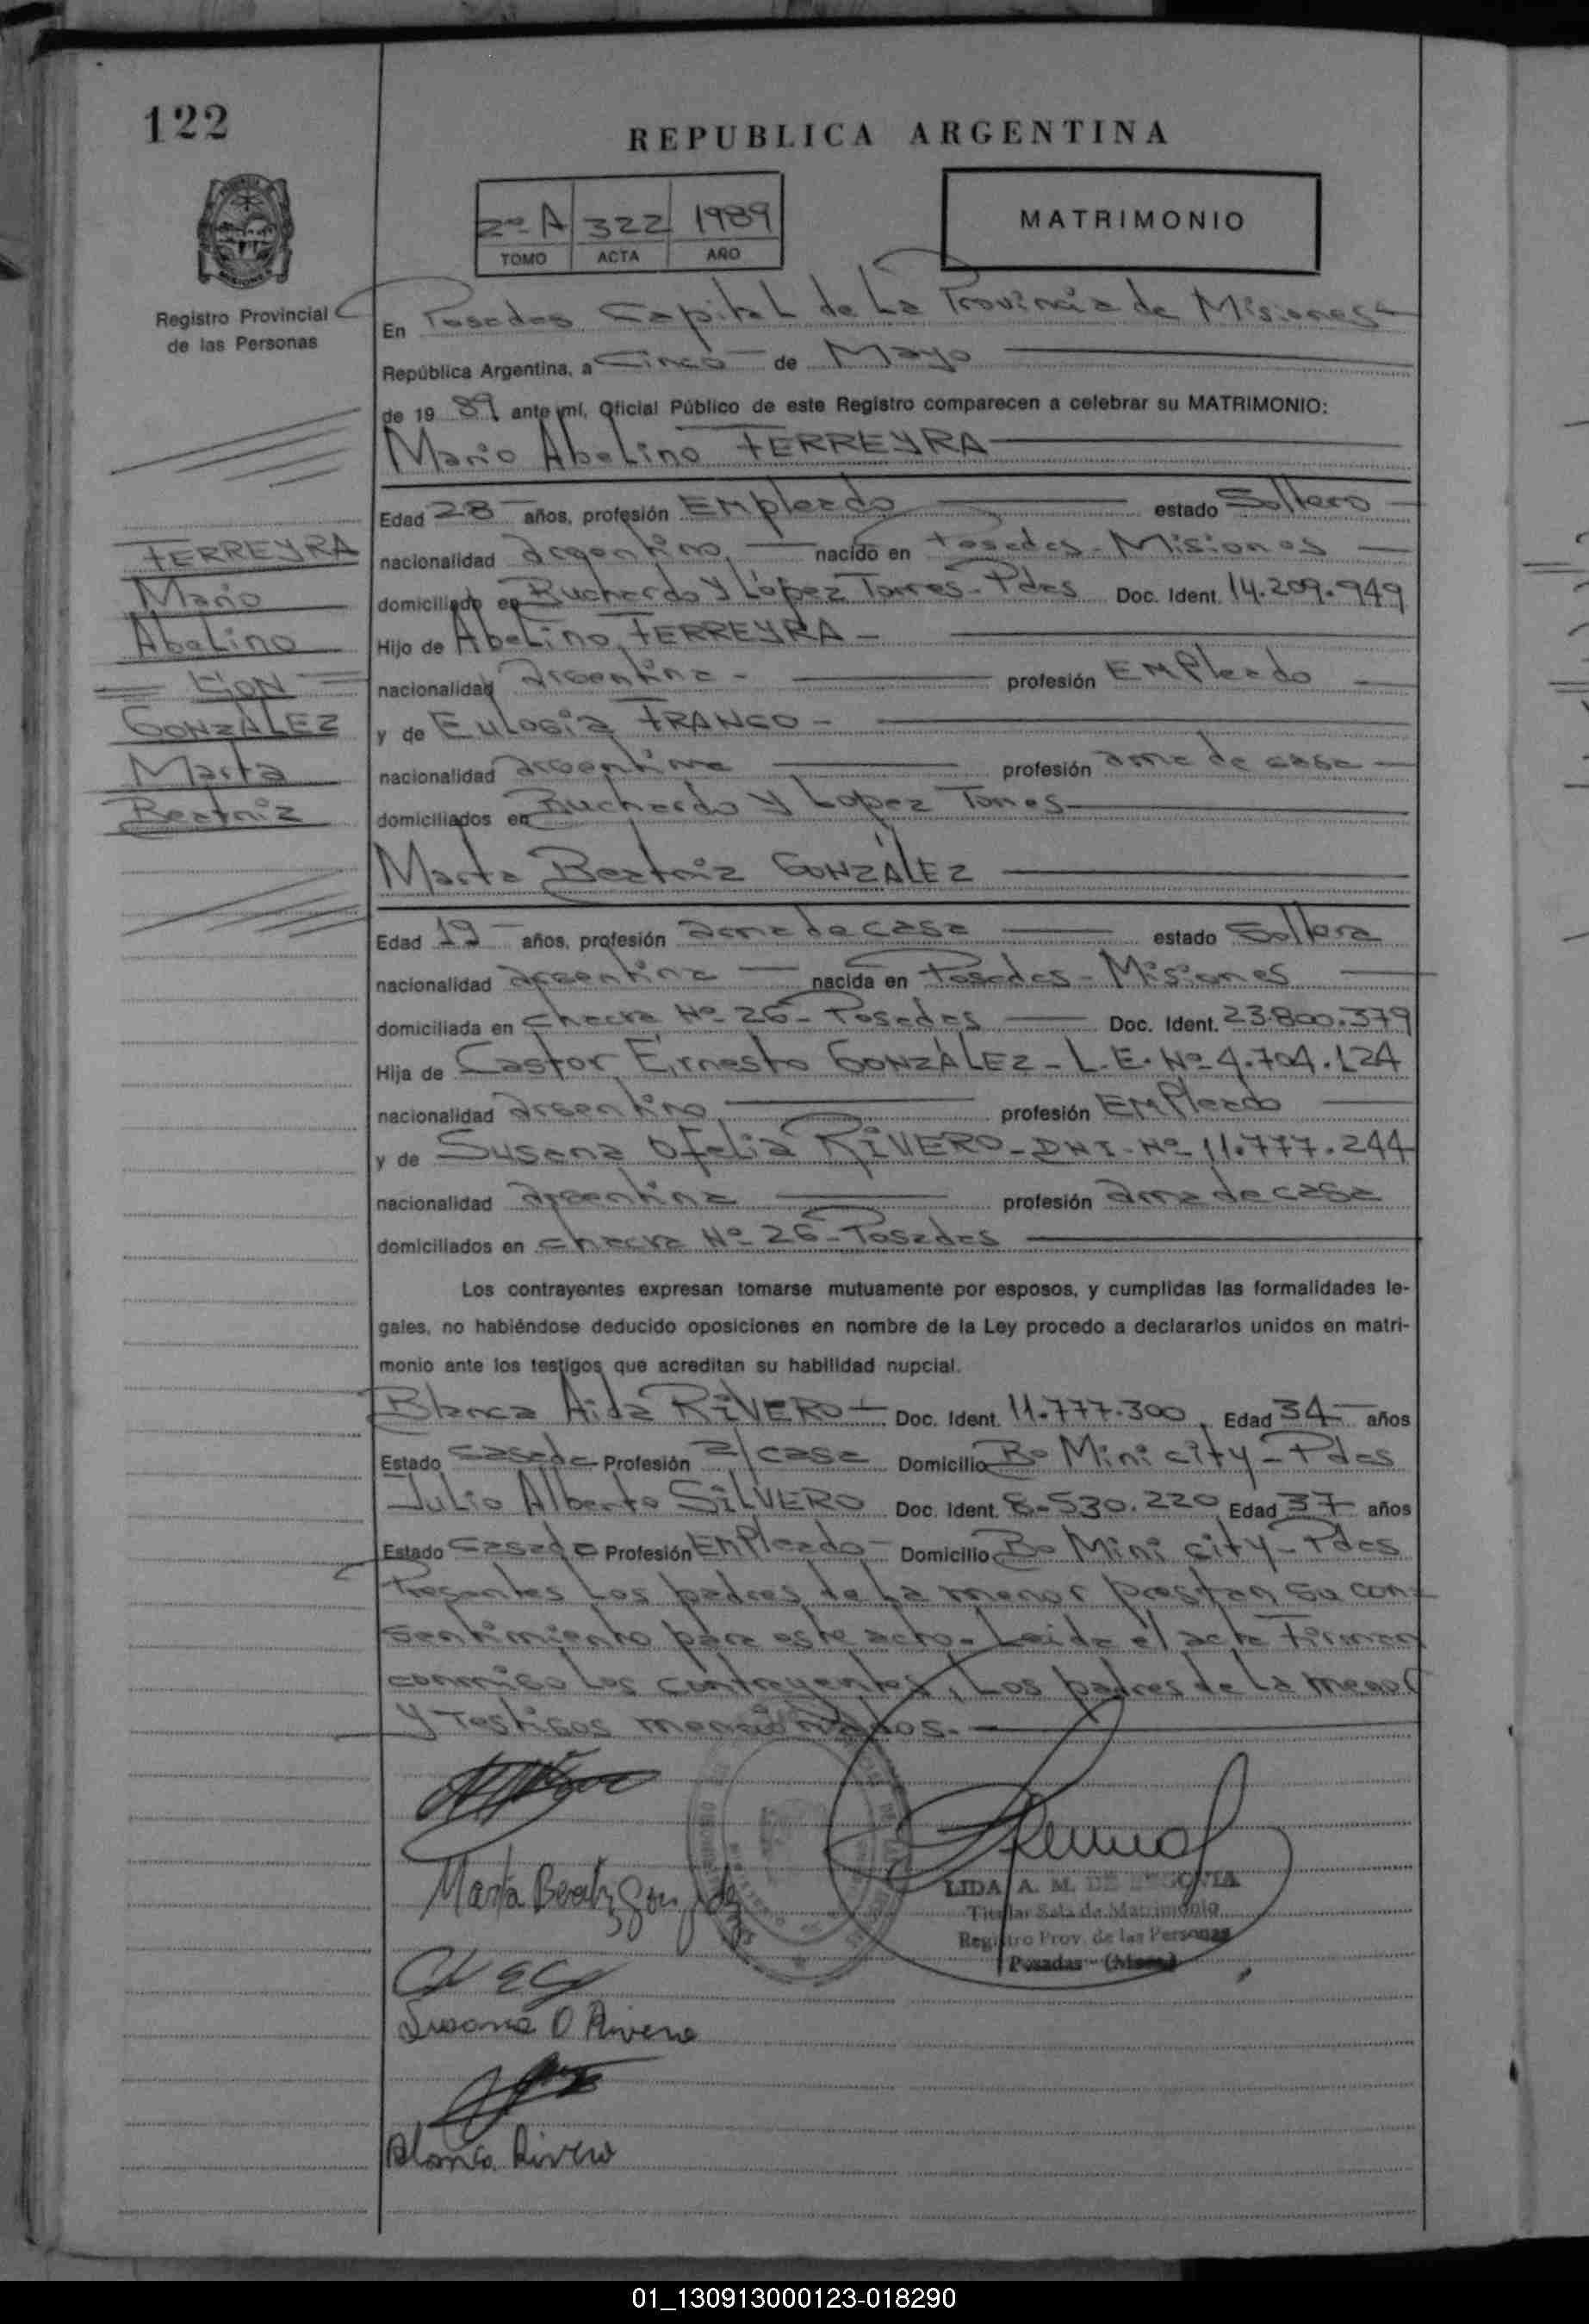 122
REPUBLICA ARGENTINA
2º A 322 1989
TOMO ACTA AÑO
MATRIMONIO
Registro Provincial
de las Personas
En Posadas Capital de La Provincia de Misiones
República Argentina, a Cinco de Mayo
de 19 89 ante mí, Oficial Público de este Registro comparecen a celebrar su MATRIMONIO:
Mario Abelino FERREYRA
Edad 28 años, profesión Empleado estado Soltero
nacionalidad argentino nacido en Posadas - Misiones
domiciliado en Buchardo y López Torres - Pdas Doc. Ident. 14.209.949
Hijo de Abelino FERREYRA -
nacionalidad argentina - profesión Empleado
y de Eulogia FRANCO -
nacionalidad argentina profesión ama de casa
domiciliados en Buchardo y Lopez Torres
Marta Beatriz GONZÁLEZ
Edad 19 años, profesión ama de casa estado Soltera
nacionalidad argentina nacida en Posadas - Misiones
domiciliada en chacra Nº 26 - Posadas Doc. Ident. 23.800.379
Hija de Castor Ernesto GONZÁLEZ - L.E. Nº 4.704.124
nacionalidad argentino profesión Empleado
y de Susana Ofelia RIVERO - DNI - Nº 11.777.244
nacionalidad argentina profesión ama de casa
domiciliados en chacra Nº 26 - Posadas
Los contrayentes expresan tomarse mutuamente por esposos, y cumplidas las formalidades le-
gales, no habiéndose deducido oposiciones en nombre de la Ley procedo a declararlos unidos en matri-
monio ante los testigos que acreditan su habilidad nupcial.
Blanca Aida RIVERO - Doc. Ident. 11.777.300 Edad 34 años
Estado casada Profesión a/casa Domicilio Bº Mini city - Pdas
Julio Alberto SILVERO Doc. Ident. 8.530.220 Edad 37 años
Estado casado Profesión Empleado - Domicilio Bº Mini city - Pdas
Presentes Los padres de La menor prestan su con-
sentimiento para este acto - Leida el acta Firman
conmigo Los contrayentes, Los padres de La menor
y Testigos mencionados. -
FERREYRA
Mario
Abelino
con
GONZÁLEZ
Marta
Beatriz
Marta Beatriz González
LIDA A. M. DE SEGOVIA
Titular Sala de Matrimonio
Registro Prov. de las Personas
Posadas - (Mnes)
Susana O Rivero
Blanca Rivero
01_130913000123-018290